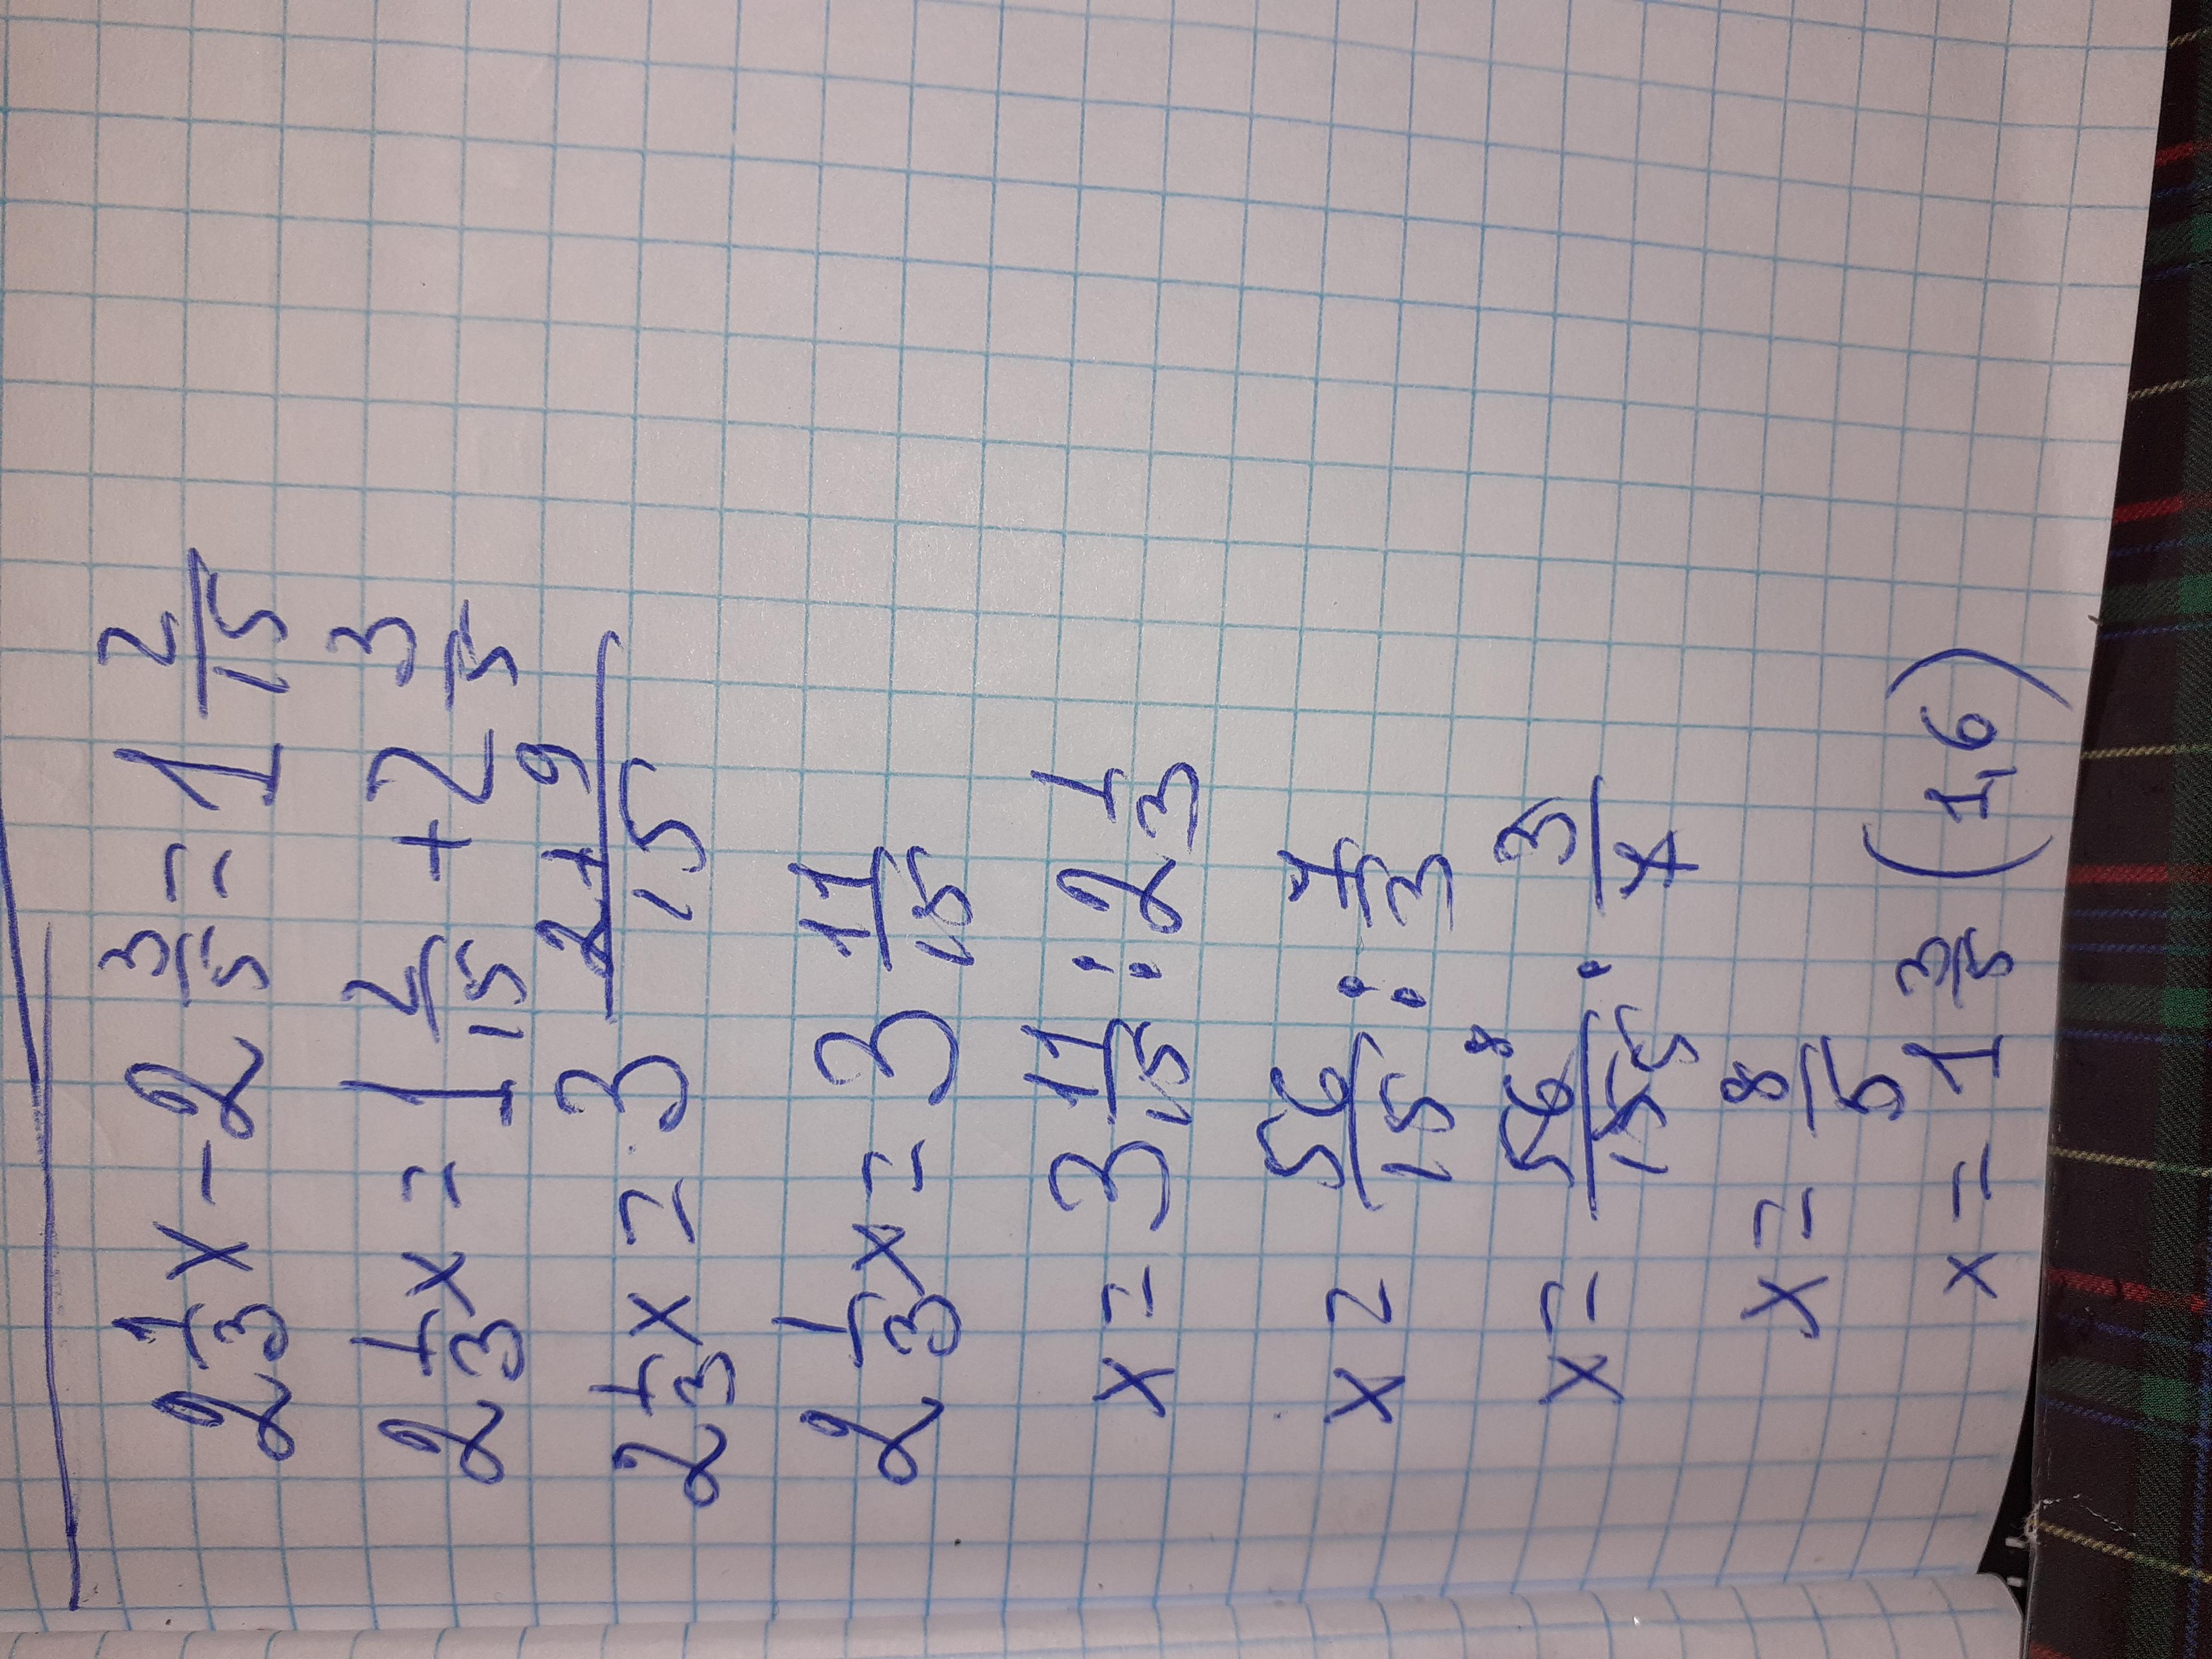 2 1/3 x - 2 3/5 = 1 2/15
2 1/3 x = 1 2/15 + 2 3/5
2 1/3 x = 3 2+9/15
2 1/3 x = 3 11/15
x = 3 11/15 : 2 1/3
x = 56/15 : 7/3
x = 56 8/15 5 · 3/7
x = 8/5
x = 1 3/5 (1,6)